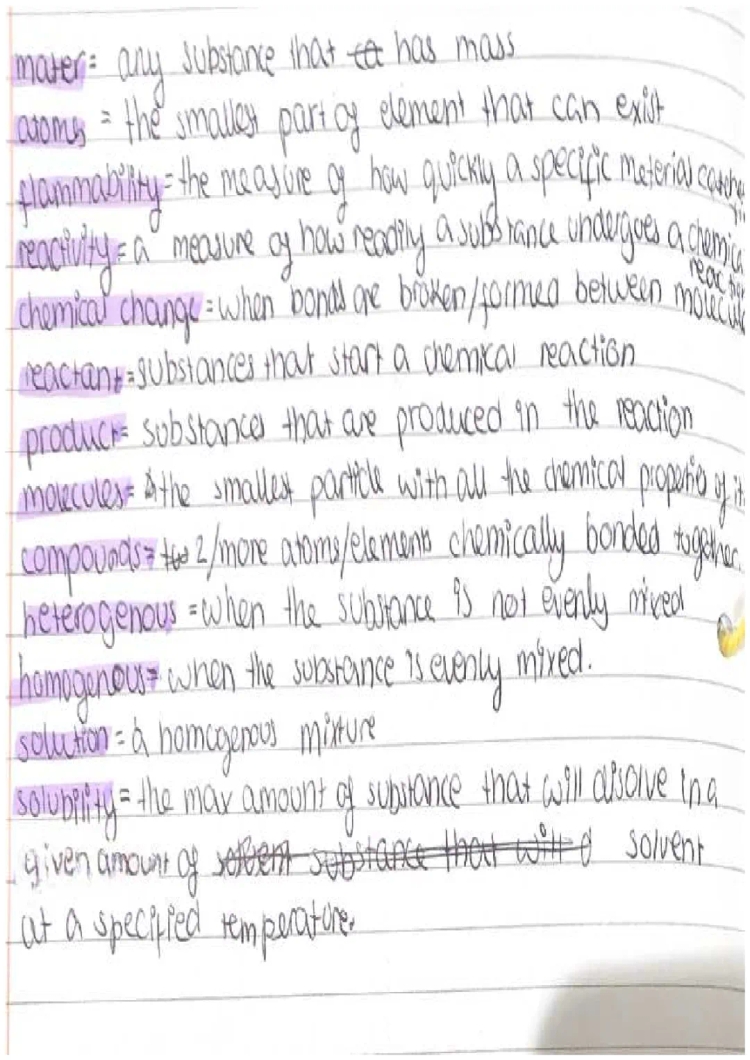 mater= any substance that has mass
atoms = the smallest part of element that can exist
flammability=the measure of how quickly a specific material catches
reactivity= a measure of how readily a substance undergoes a chemical
reaction
chemical change=when bonds are broken/formed between molecules
reactant=substances that start a chemical reaction
product= substances that are produced in the reaction
molecules= the smallest particle with all the chemical properties of it
compounds= 2/more atoms/elements chemically bonded together
heterogenous =when the substance is not evenly mixed
homogenous= when the substance is evenly mixed.
solution = a homogenous mixture
solubility= the max amount of substance that will disolve in a
given amount of solvent substance that will d solvent
at a specified temperature.